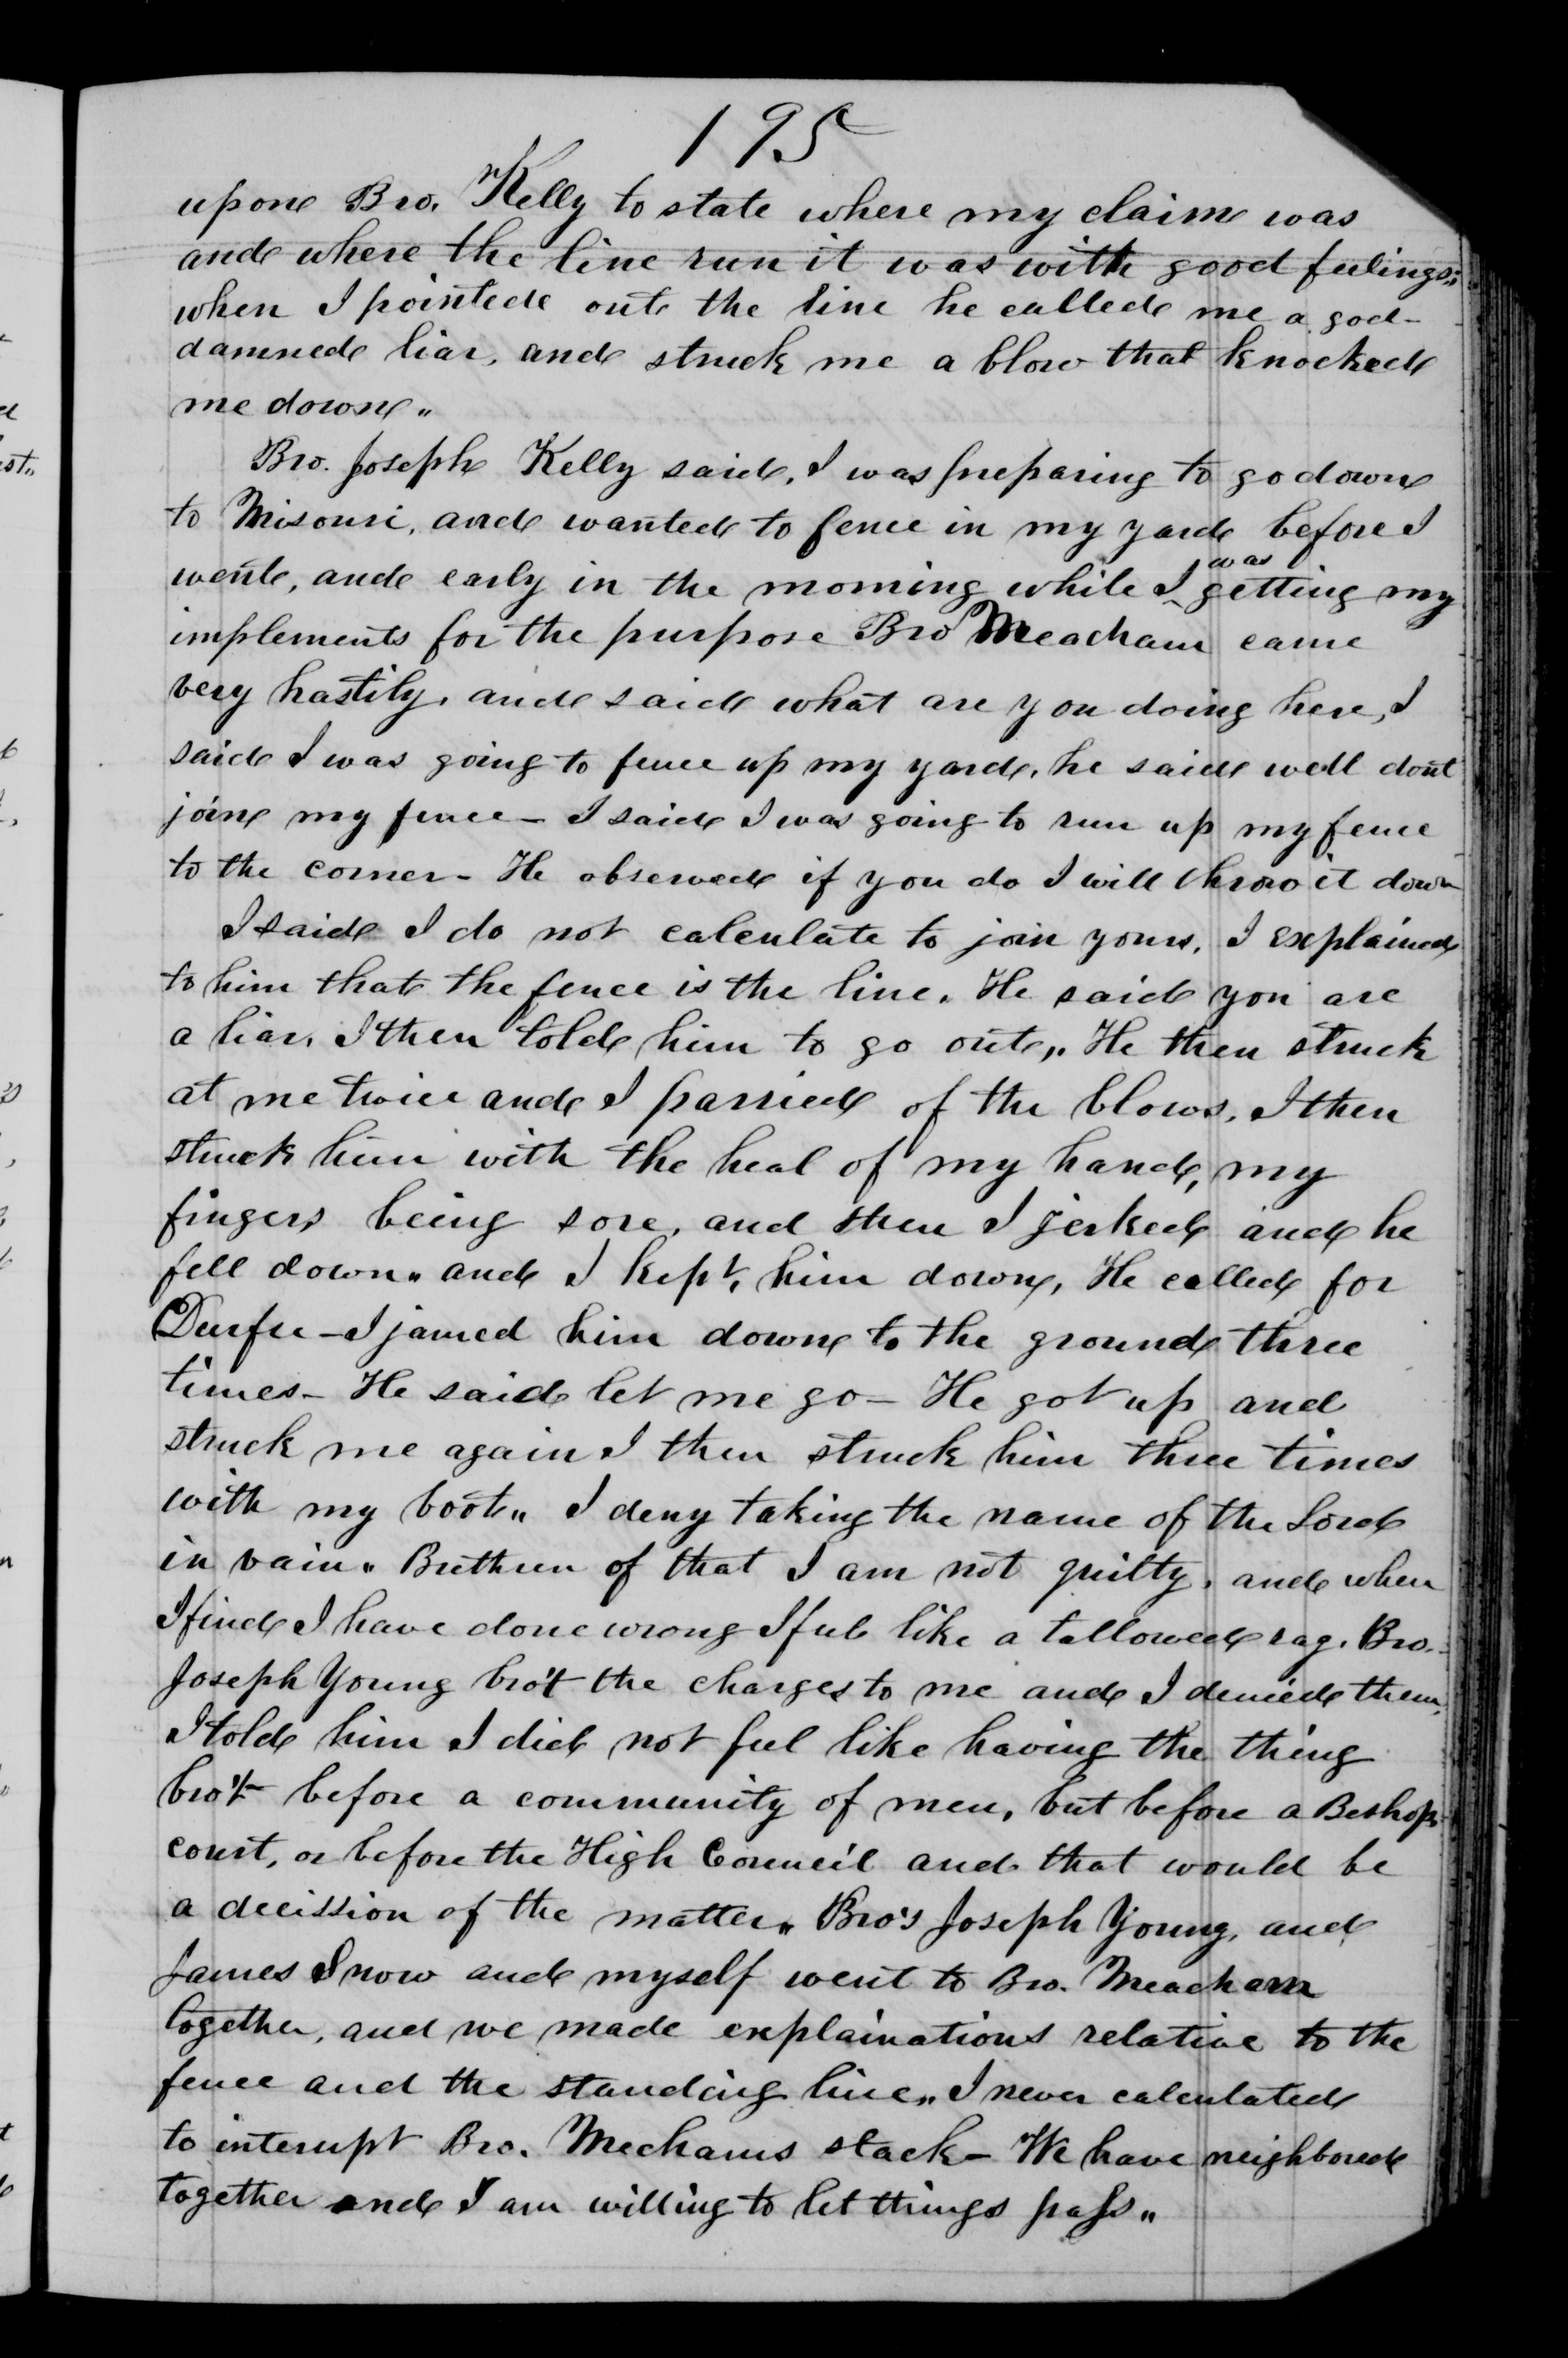 195
upon Bro. Kelly to state where my claim was
and where the line run it was with good feelings„
when I pointed out the line he called me a god-
damned liar, and struck me a blow that knocked
me down„
Bro. Joseph Kelly said, I was preparing to go down
to Misouri, and wanted to fence in my yard before I
went, and early in the morning while I ^was getting my
implements for the purpose Bro Meacham came
very hastily, and said what are you doing here, I
said I was going to fence up my yard, he said well dont
join my fence – I said I was going to run up my fence
to the corner – He observed if you do I will throw it down
I said I do not calculate to join yours, I explained
to him that the fence is the line. He said you are
a liar, I then told him to go out„ He then struck
at me twice and I parried of the blows, I then
struck him with the heal of my hand, my
fingers being sore, and then I jerked and he
fell down„ and I kept, him down, He called for
Durfee – I jamed him down to the ground three
times – He said let me go – He got up and
struck me again I then struck him three times
with my boot„ I deny taking the name of the Lord
in vain„ Brethren of that I am not guilty, and when
I find I have done wrong I feel like a tallowed rag. Bro.
Joseph Young bro't the charges to me and I denied them,
I told him I did not feel like having the thing
bro't before a community of men, but before a Beshops
court, or before the High Council and that would be
a decission of the matter„ Bro's Joseph Young, and
James Snow and myself went to Bro. Meacham
together, and we made explainations relative to the
fence and the standing line„ I never calculated
to interupt Bro. Mechams stack – We have neighbored
together and I am willing to let things pass„